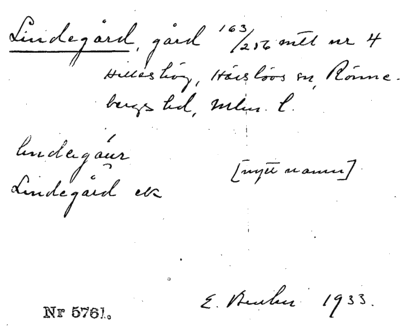 Lindegård, gård 163/256 mtl nr 4
Hilleshög, Härslövs sn, Rönne-
bergs hd, Mlm. l.
lindegåur
Lindegård ek [nytt namn]
E. 1933.
Nr 5761.